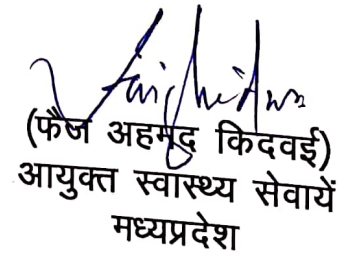 (फैज अहमद किदवई)
आयुक्त स्वास्थ्य सेवायें
मध्यप्रदेश